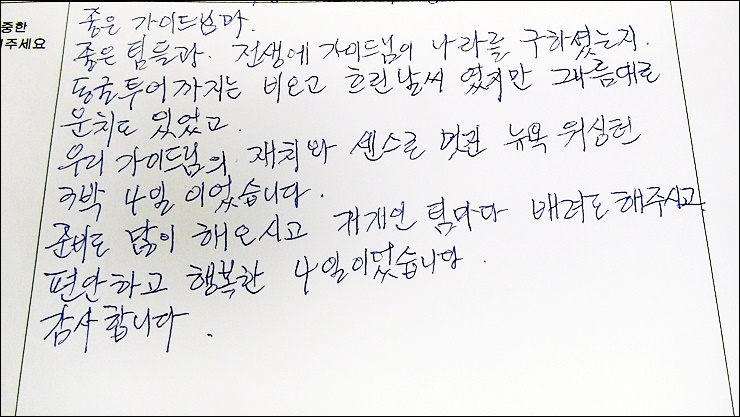 중한
1주세요
좋은 가이드님과.
좋은 팀들과. 전생에 가이드님이 나라를 구하셨는지.
동굴투어 까지는 비오고 흐린날씨 였지만 그나름대로
운치도 있었고.
우리 가이드님의 재치와 센스로 멋진 뉴욕 워싱턴
3박 4일 이었습니다.
준비도 많이 해오시고 개개인 팀마다 배려도 해주시고
편안하고 행복한 4일이었습니다.
감사 합니다.